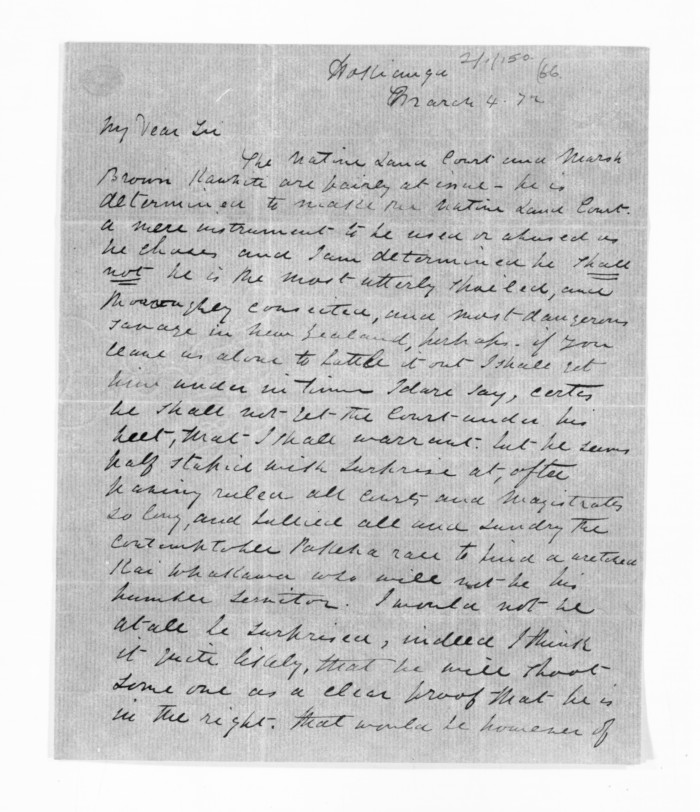 Hokianga
March 4. 72
My Dear Sir
The Native Land Court and Marsh
Brown Kawhiti are fairly at issue - he is
determined to make the Native Land Court.
a mere instrument to be used or abused as
he choses and I am determined he shall
not he is the most utterly spoiled, and
thoroughly conscited, and most dangerous
savage in New Zealand, perhaps. if you
leave us alone to battle it out I shall get
him under in time I dare say, certes
he shall not get the Court under his
heel, that I shall warrant. but he seems
half stupid with surprise at, after
having ruled all curts and Magistrates
so long, and bullied all and sundry the
contemptobel Pakeha race to find a wretched
Kai Whakawa who will not be his
humber servitor. I would not be
at all be surprised, indeed I think
it quite likely, that he will shoot
some one as a clear proof that he is
in the right. that would be however of